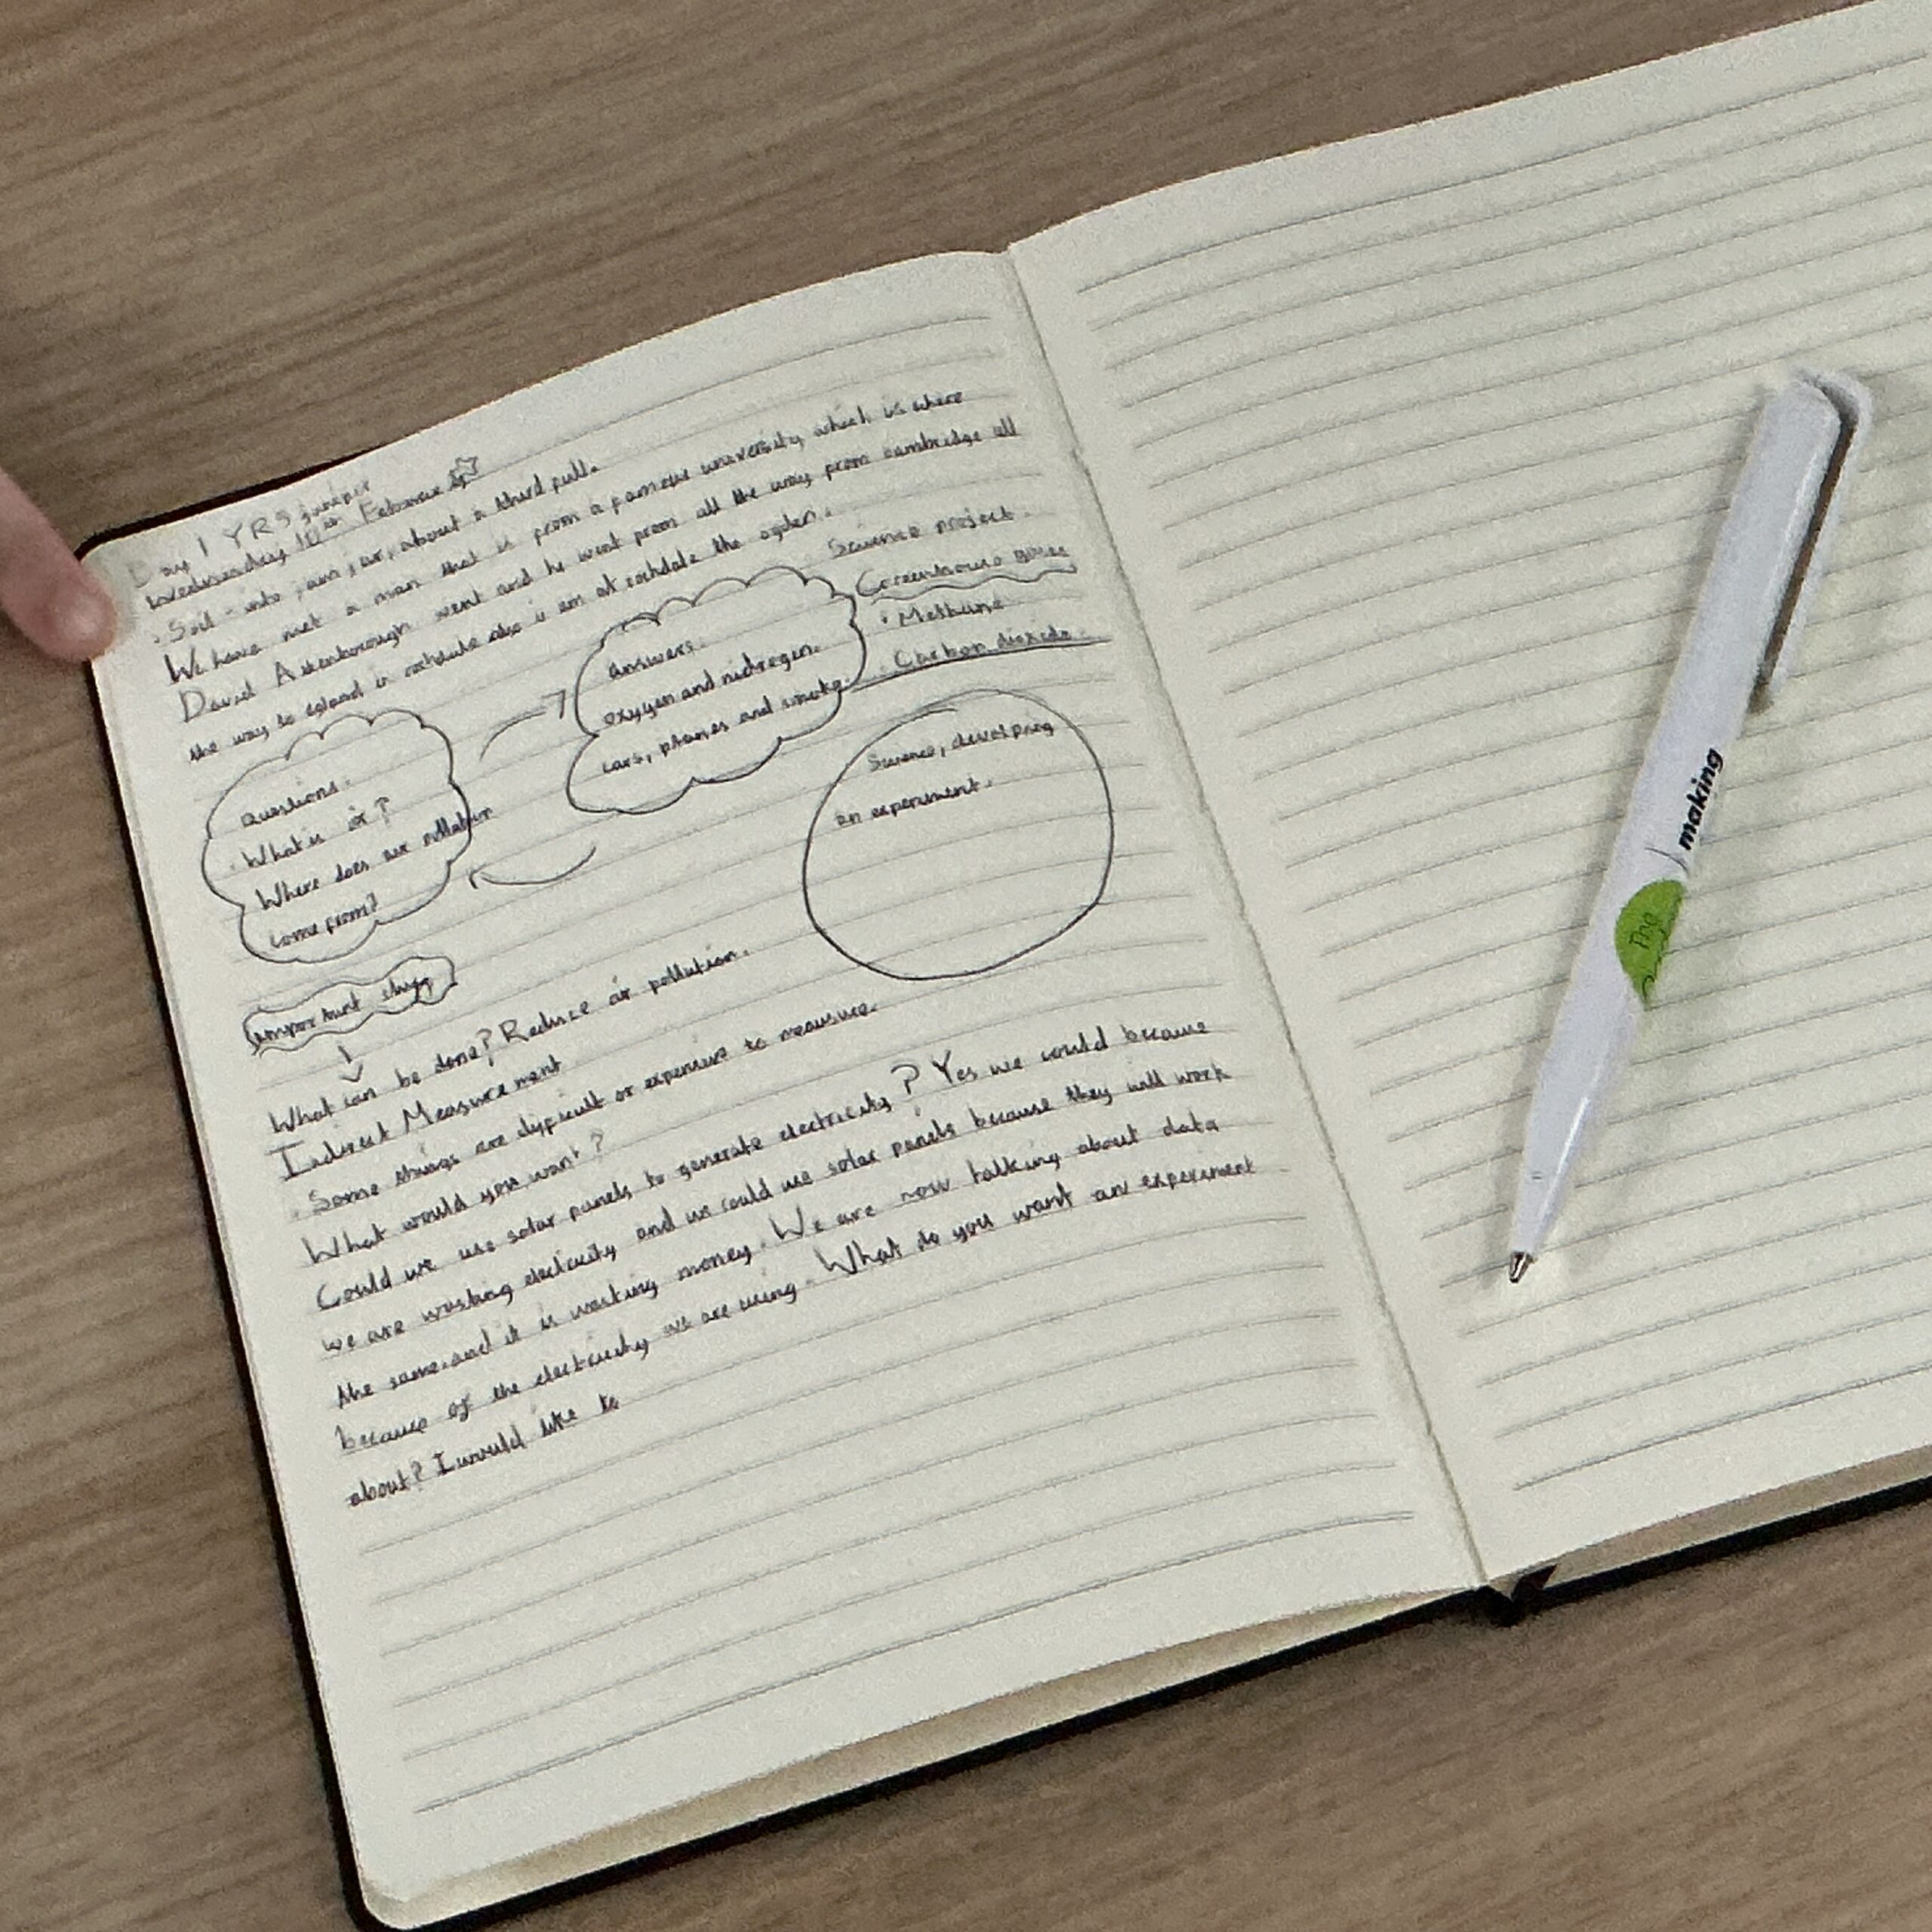 Day 1 YRS juniper
Wednesday 10th Feburary
. Soil - into jam jar, about a third full.
We have met a man that is from a famous university which is where
David Attenborough went and he went from all the way from cambridge all
the way to ogland in rochdale also i am at rochdale the ogden.
Science project.
Greenhouse gases
. Methane
. Carbon dioxide.
answers.
oxygen and nidrogen.
cars, phones and smoke.
Questions.
. What is air?
Where does air pollution
come from?
Science, develping
an experiment.
important thing
What can be done? Reduce air pollution.
Indirect Measurement
. Some things are dypicult or expensive to measure.
What would you want?
Could we use solar panels to generate electricity? Yes we could because
we are wasting electricity and we could use solar panels because they will work
the same and it is wasting money. We are now talking about data
because of the electricity we are using. What do you want an experiment
about? I would like to
making
The